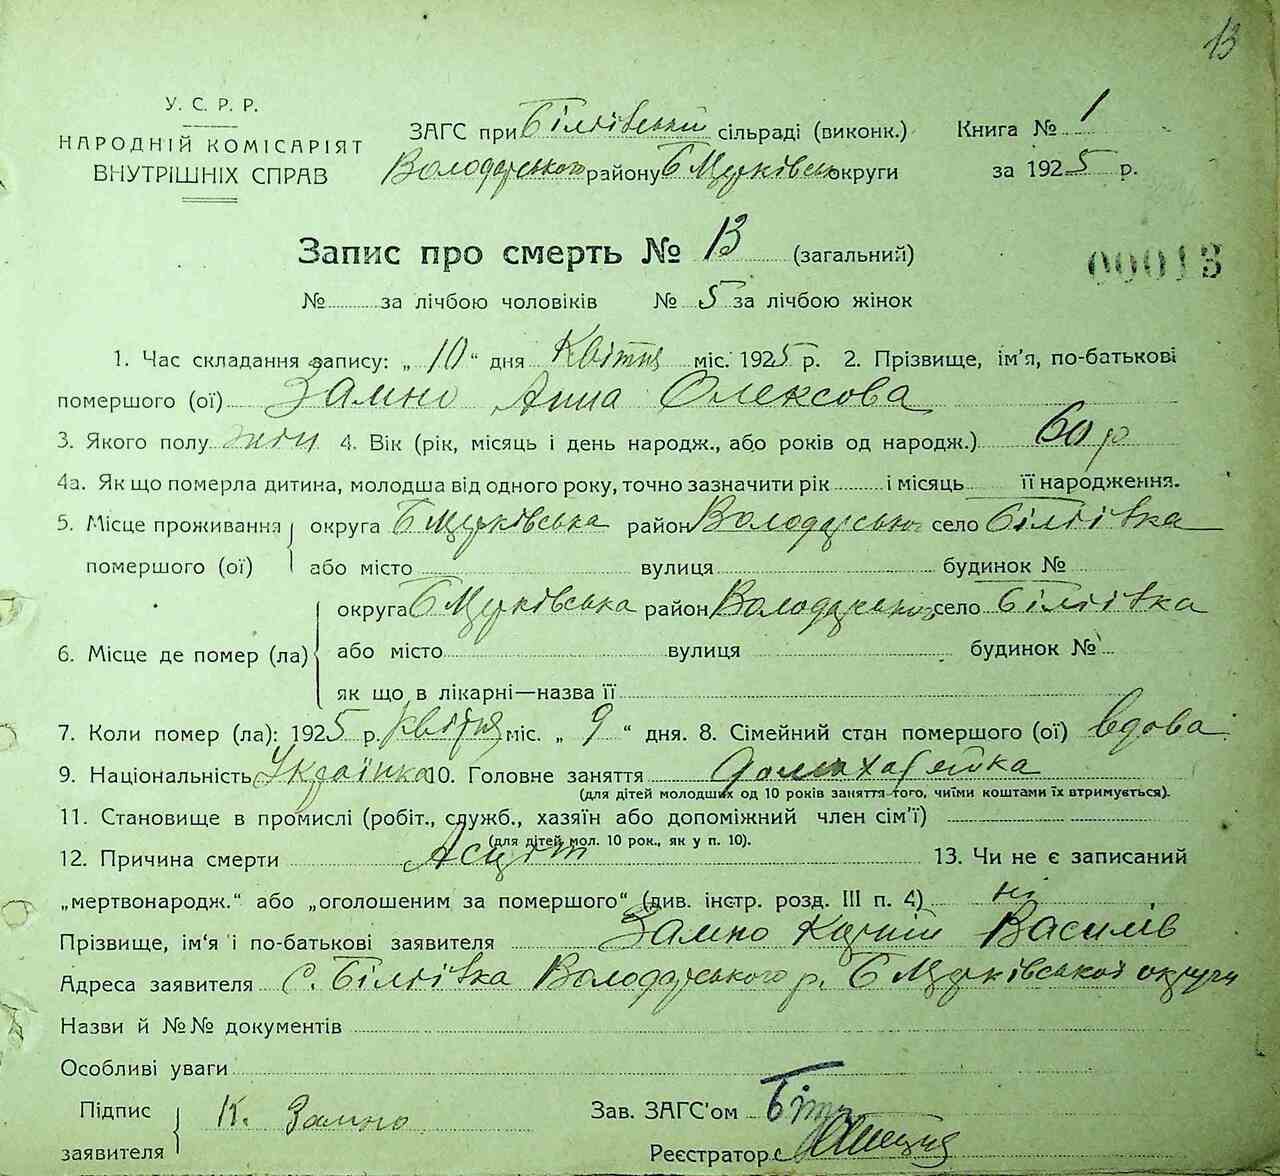 13
У. С. Р. Р.
НАРОДНІЙ КОМІСАРІЯТ
ВНУТРІШНІХ СПРАВ
ЗАГС при Біліївській сільраді (виконк.) Книга № 1
Володарського району БЦерківськ округи за 1925 р.
Запис про смерть № 13 (загальний)
00013
№ за лічбою чоловіків № 5 за лічбою жінок
1. Час складання запису: „ 10 “ дня Квітня міс. 1925 р. 2. Прізвище, ім'я, по-батькові
помершого (ої) Замно Анна Олексова
3. Якого полу жін 4. Вік (рік, місяць і день народж., або років од народж.) 60 р
4а. Як що померла дитина, молодша від одного року, точно зазначити рік і місяць її народження.
5. Місце проживання помершого (ої) округа БЦерківська район Володарського село Біліївка
або місто вулиця будинок №
6. Місце де помер (ла) округа БЦерківська район Володарського село Біліївка
або місто вулиця будинок №
як що в лікарні—назва її
7. Коли помер (ла): 1925 р. квітня міс. „ 9 “ дня. 8. Сімейний стан помершого (ої) вдова
9. Національність Українка 10. Головне заняття домахазяйка
(для дітей молодших од 10 років заняття того, чиїми коштами їх втримується).
11. Становище в промислі (робіт., служб., хазяїн або допоміжний член сім'ї)
(для дітей мол. 10 рок., як у п. 10).
12. Причина смерти Асцит 13. Чи не є записаний
„мертвонародж.“ або „оголошеним за помершого“ (див. інстр. розд. III п. 4) ні
Прізвище, ім'я і по-батькові заявителя Замно Карпій Василів
Адреса заявителя с. Біліївка Володарського р. БЦерківської округи
Назви й №№ документів
Особливі уваги
Підпис заявителя К. Замно
Зав. ЗАГС'ом
Реєстратор